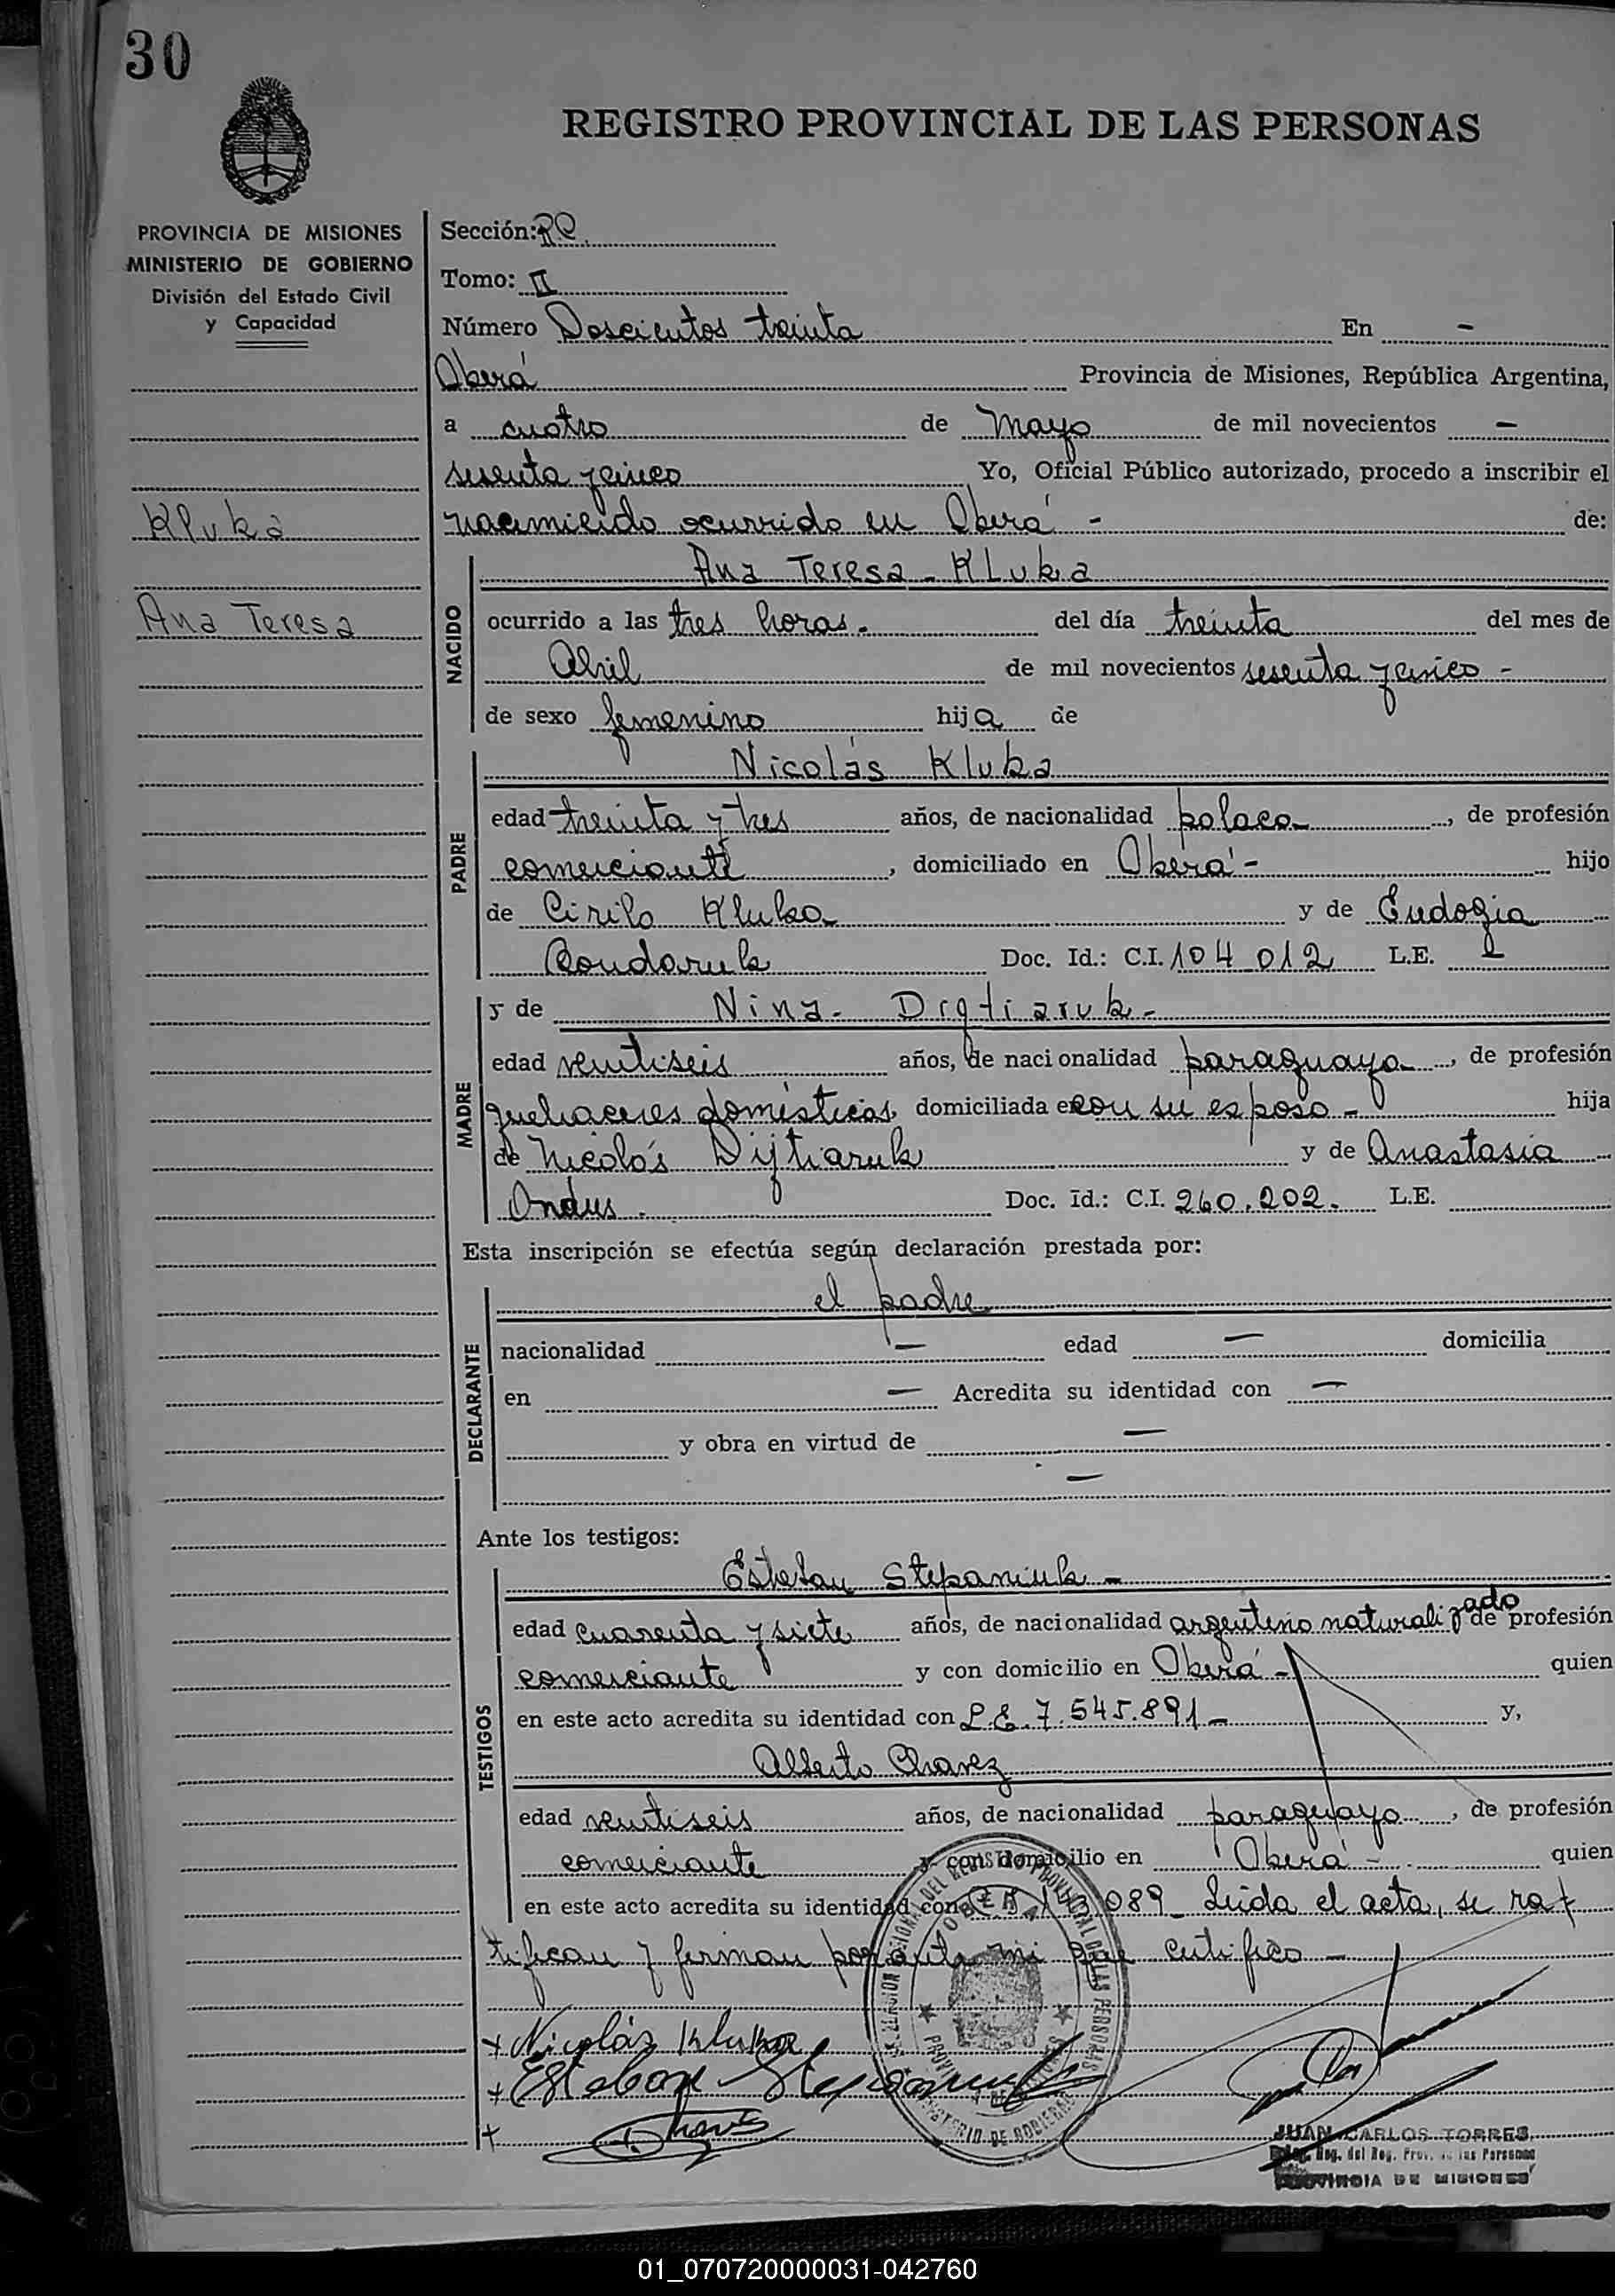 30
REGISTRO PROVINCIAL DE LAS PERSONAS
PROVINCIA DE MISIONES
MINISTERIO DE GOBIERNO
División del Estado Civil
y Capacidad
Kluka
Ana Teresa
Sección:
Tomo: II
Número Doscientos treinta En -
Oberá Provincia de Misiones, República Argentina,
a cuatro de Mayo de mil novecientos -
sesenta y cinco Yo, Oficial Público autorizado, procedo a inscribir el
nacimiento ocurrido en Oberá - de:
NACIDO
Ana Teresa - Kluka
ocurrido a las tres horas. del día treinta del mes de
Abril de mil novecientos sesenta y cinco -
de sexo femenino hija de
PADRE
Nicolás Kluka
edad treinta y tres años, de nacionalidad polaca, de profesión
comerciante, domiciliado en Oberá - hijo
de Cirilo Kluka y de Eudogia
Bondaruk Doc. Id.: C.I. 104 012 L.E.
MADRE
y de Nina - Digtiaruk -
edad veintiseis años, de nacionalidad paraguaya, de profesión
quehaceres domésticos, domiciliada en con su esposo - hija
de Nicolás Dijtiaruk y de Anastasia
Ondus. Doc. Id.: C.I. 260.202. L.E.
Esta inscripción se efectúa según declaración prestada por:
DECLARANTE
el padre
nacionalidad — edad — domicilia
en — Acredita su identidad con —
y obra en virtud de —
—
Ante los testigos:
TESTIGOS
Esteban Stepaniuk -
edad cuarenta y siete años, de nacionalidad argentino naturalizado de profesión
comerciante y con domicilio en Oberá - quien
en este acto acredita su identidad con L.E. 7.545.891 - y,
Alberto Chavez
edad veintiseis años, de nacionalidad paraguayo, de profesión
comerciante y con domicilio en Oberá - quien
en este acto acredita su identidad con 089 - Leida el acta, se ra
tifican y firman por ante mi que certifico -
+ Nicolás Kluka
+ Esteban Stepaniuk
+ Chavez
JUAN CARLOS TORRES
Reg. del Reg. Prov. de las Personas
PROVINCIA DE MISIONES
01_070720000031-042760